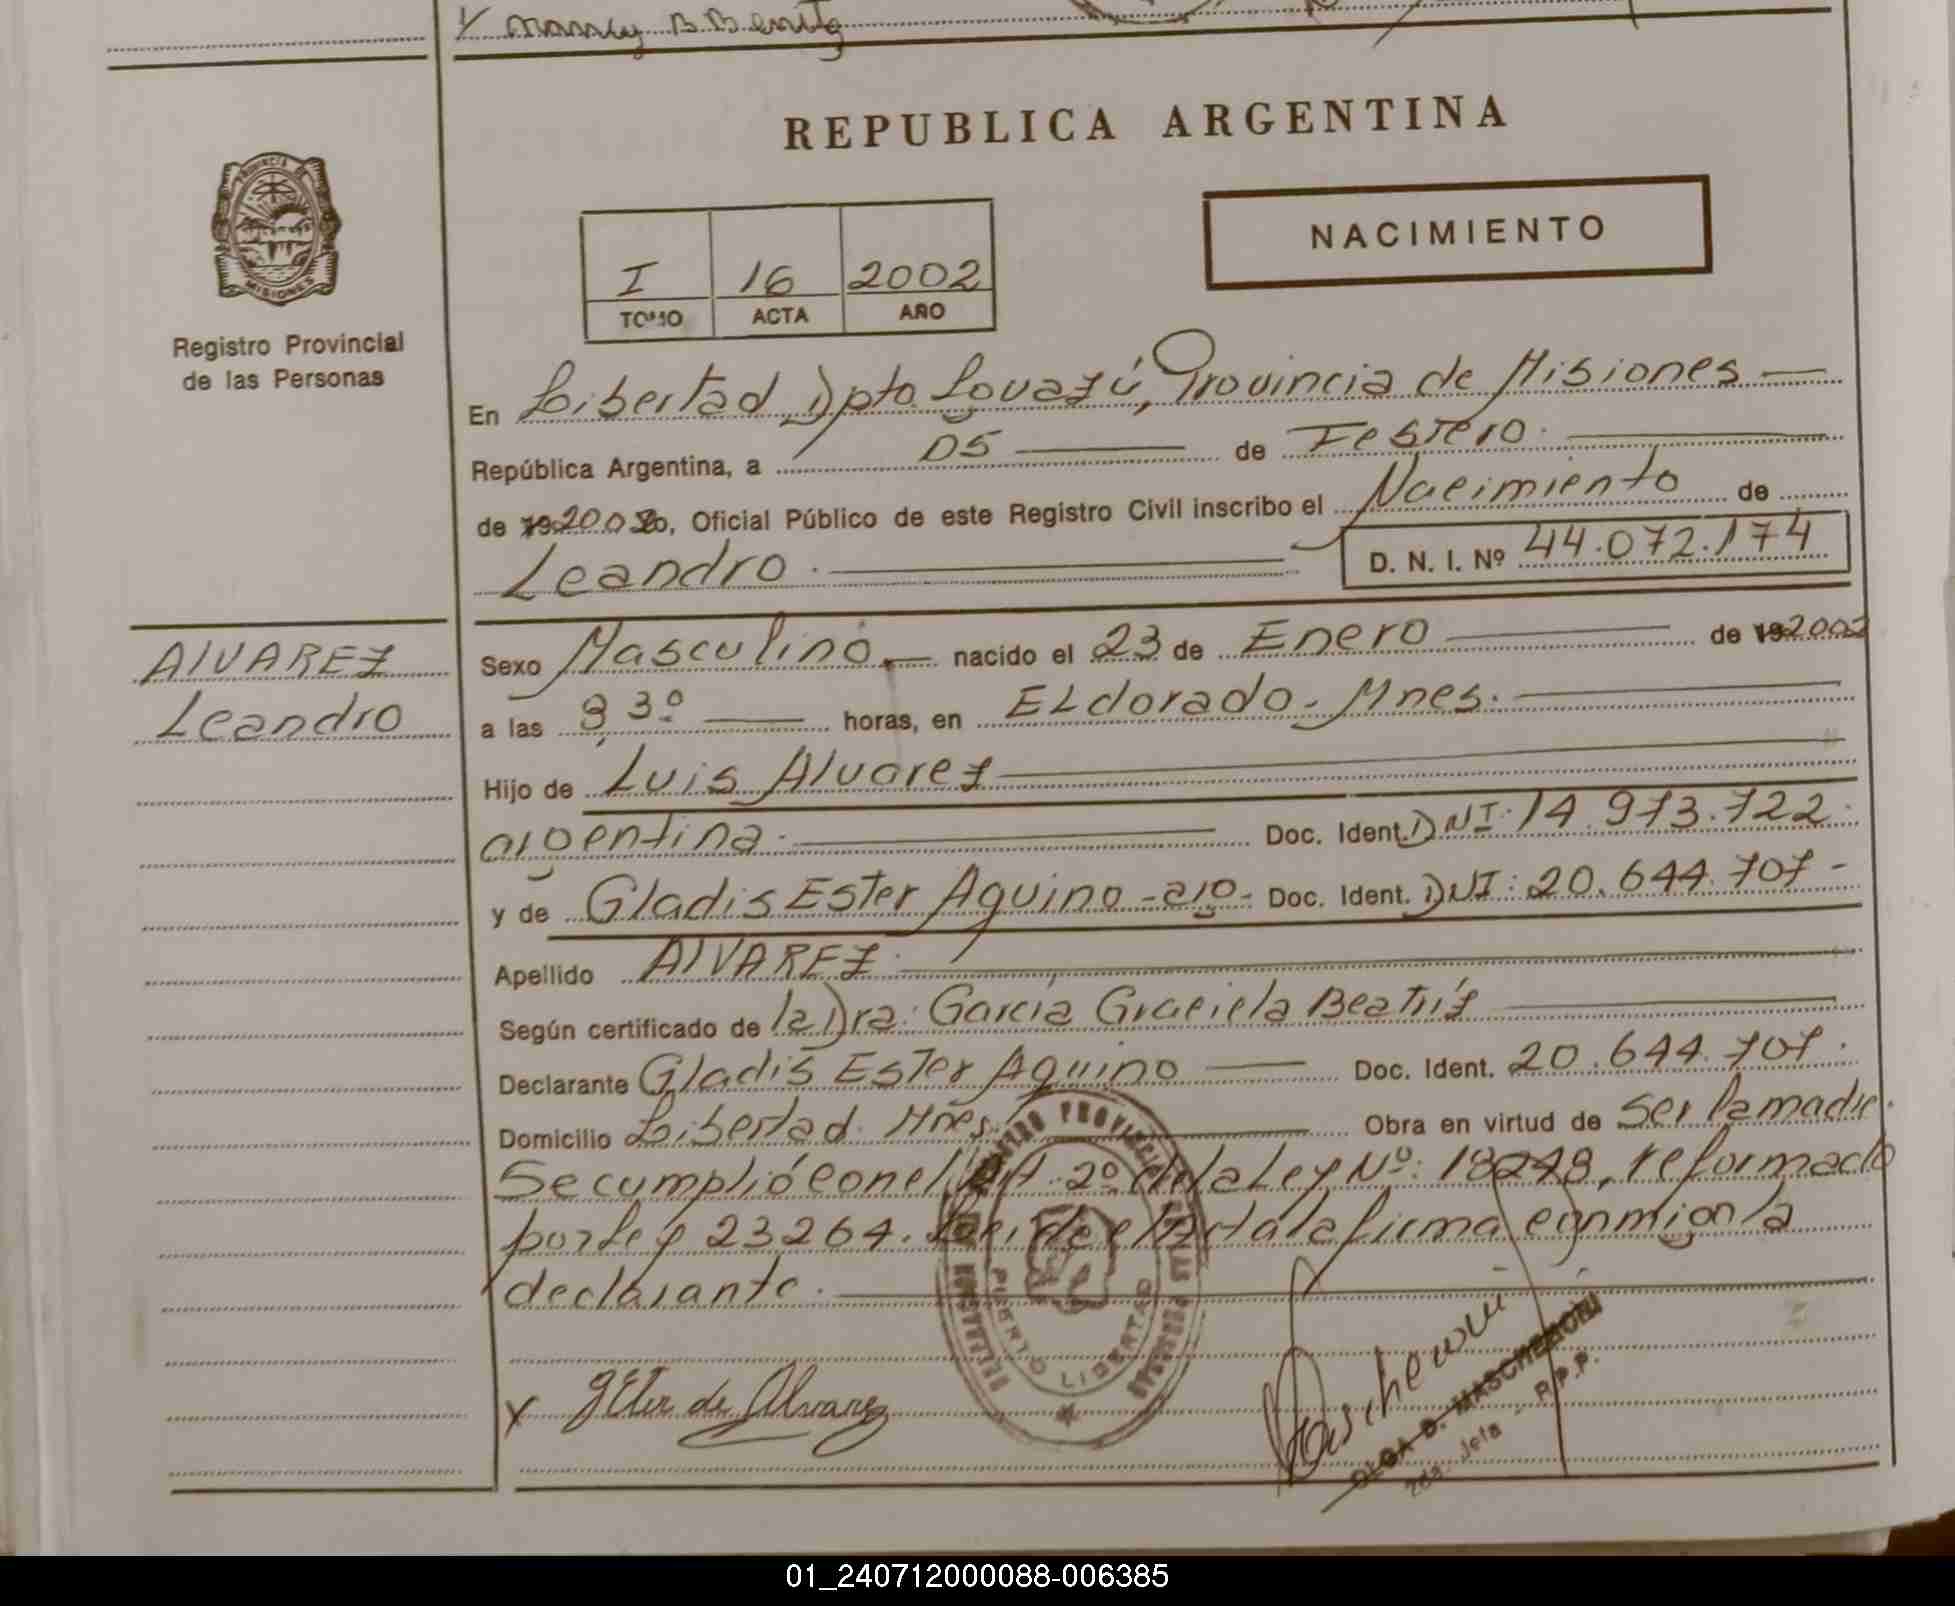 REPUBLICA ARGENTINA
PROVINCIA DE
MISIONES
Registro Provincial
de las Personas
NACIMIENTO
I 16 2002
TOMO ACTA AÑO
En Libertad Dpto Iguazú, Provincia de Misiones
República Argentina, a 05 de Febrero.
de 2002, Oficial Público de este Registro Civil inscribo el Nacimiento de
Leandro. D. N. I. Nº 44.072.174
ALVAREZ
Leandro
Sexo Masculino. nacido el 23 de Enero de 192002
a las 8,30 horas, en ELdorado. Mnes.
Hijo de Luis Alvarez
argentina. Doc. Ident. DNI. 14.973.722.
y de Gladis Ester Aquino - arg - Doc. Ident. DNI: 20.644.707 -
Apellido ALVAREZ.
Según certificado de la Dra. García Graciela Beatríz
Declarante Gladis Ester Aquino Doc. Ident. 20.644.707.
Domicilio Libertad. Mnes. Obra en virtud de ser la madre.
Se cumplió con el Art. 2º de la Ley Nº: 18248, reformado
por Ley 23264. Leida el Acta la firma conmigo la
declarante.
REGISTRO PROVINCIAL DE LAS PERSONAS
PUERTO LIBERTAD
x GEster de Alvarez
OLGA D. MASCHERONI
2da. Jefa - R.P.P.
01_240712000088-006385